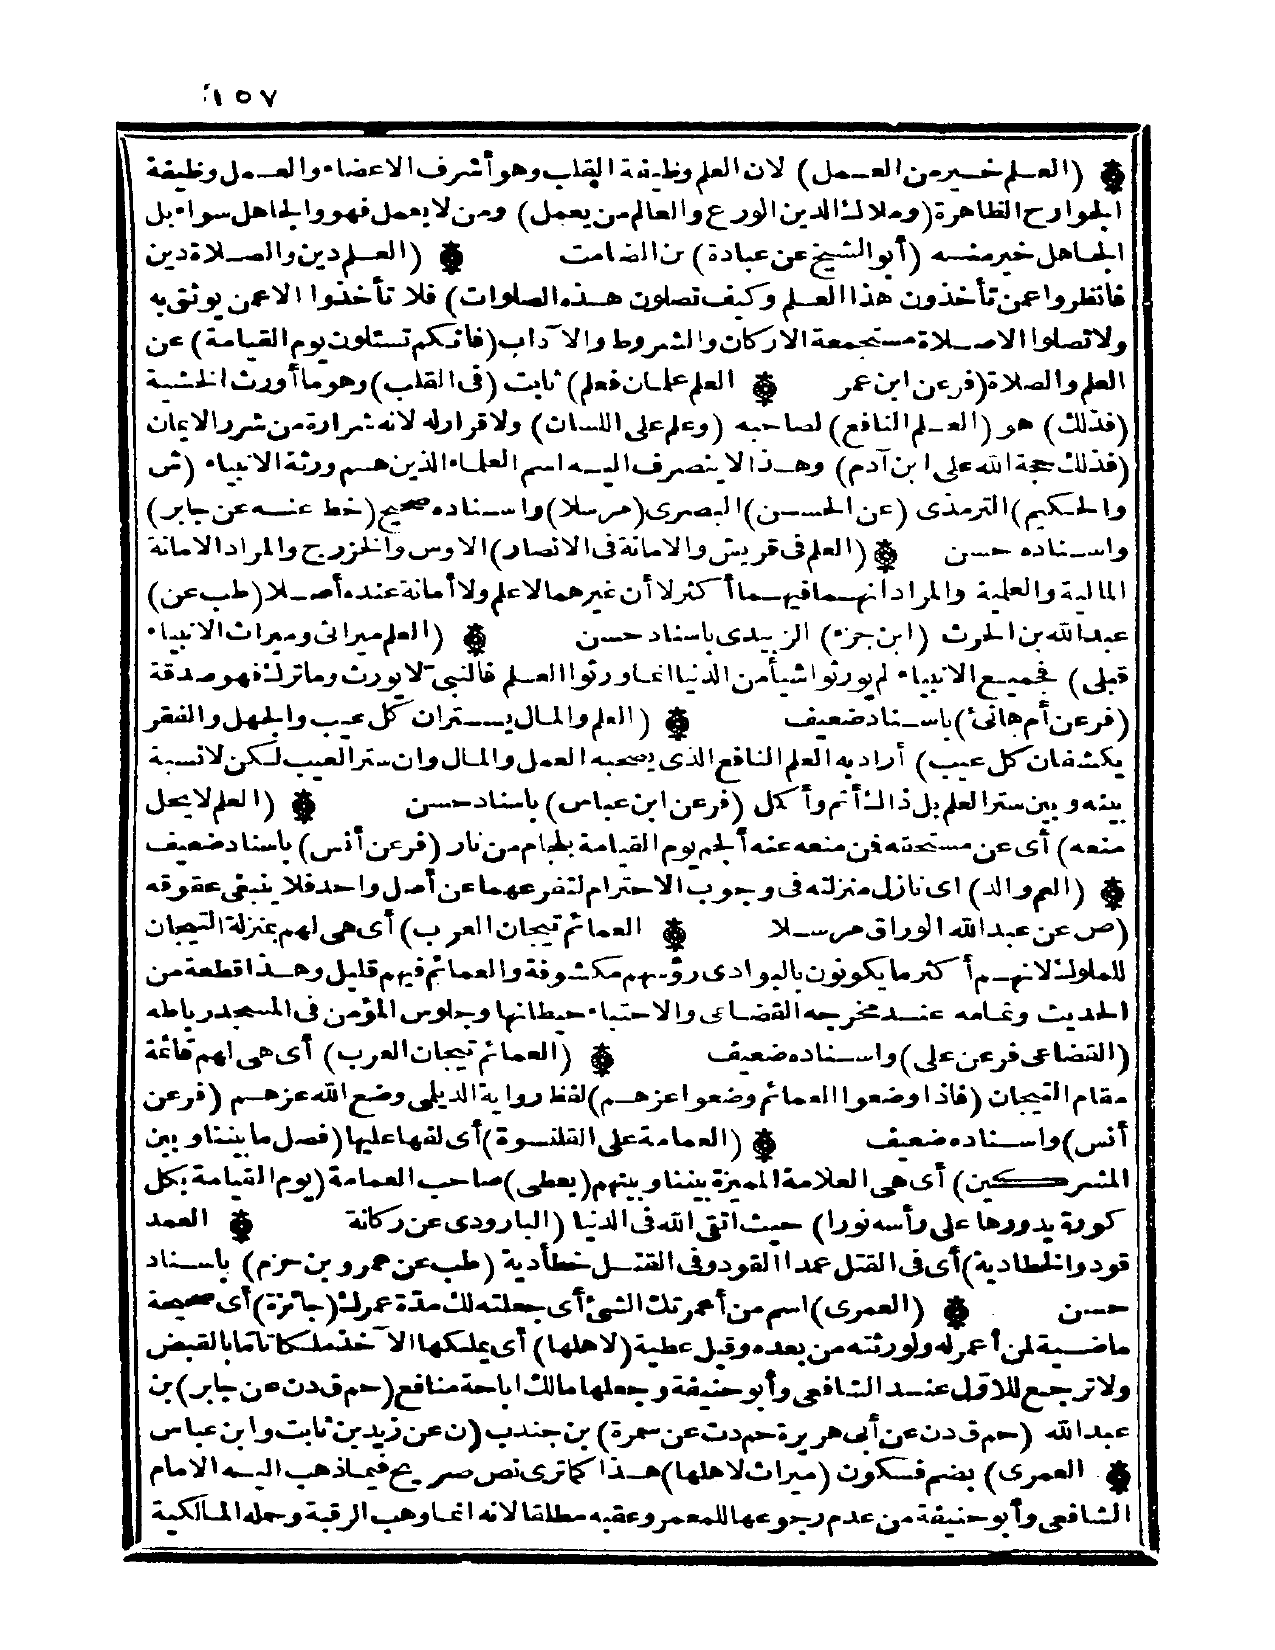 ١٥٧
(العلم خير من العمل) لان العلم وظيفة القلب وهو أشرف الاعضاء والعمل وظيفة
الجوارح الظاهرة (وملاك الدين الورع والعالم من يعمل) ومن لا يعمل فهو والجاهل سواء بل
الجاهل خير منه (أبو الشيخ عن عبادة) بن الصامت (العلم دين والصلاة دين
فانظروا عمن تأخذون هذا العلم وكيف تصلون هذه الصلوات) فلا تأخذوا الا عمن يوثق به
ولا تصلوا الا صلاة مستجمعة الاركان والشروط والآداب (فانكم تسئلون يوم القيامة) عن
العلم والصلاة (فر عن ابن عمر العلم علمان فعلم) ثابت (فى القلب) وهو ما أورث الخشية
(فذلك) هو (العلم النافع) لصاحبه (وعلم على اللسان) ولا قرار له لانه شرارة من شرر الايمان
(فذلك حجة الله على ابن آدم) وهذا لا ينصرف اليه اسم العلماء الذين هم ورثة الانبياء (ش
والحكيم) الترمذى (عن الحسن) البصرى (مرسلا) واسناده صحيح (خط عنه عن جابر)
واسناده حسن (العلم فى قريش والامانة فى الانصار) الاوس والخزرج والمراد الامانة
المالية والعلمية والمراد انهما فيهما أكثر لا أن غيرهما لا علم ولا أمانة عنده أصلا (طب عن)
عبد الله بن الحرث (ابن جزء) الزبيدى باسناد حسن (العلم ميراثى وميراث الانبياء
قبلى) فجميع الانبياء لم يورثوا شيأ من الدنيا انما ورثوا العلم فالنبى لا يورث وما ترك فهو صدقة
(فر عن أم هانئ) باسناد ضعيف (العلم والمال يستران كل عيب والجهل والفقر
يكشفان كل عيب) أراد به العلم النافع الذى يصحبه العمل والمال وان ستر العيب لكن لا نسبة
بينه وبين ستر العلم بل ذاك أتم وأكمل (فر عن ابن عباس) باسناد حسن (العلم لا يحل
منعه) أى عن مستحقه فمن منعه عنه ألجم يوم القيامة بلجام من نار (فر عن أنس) باسناد ضعيف
(العم والد) اى نازل منزلته فى وجوب الاحترام لتفرعهما عن أصل واحد فلا ينبغى عقوقه
(ص عن عبد الله الوراق مرسلا العمائم تيجان العرب) أى هى لهم بمنزلة التيجان
للملوك لانهم أكثر ما يكونون بالبوادى رؤسهم مكشوفة والعمائم فيهم قليل وهذا قطعة من
الحديث وتمامه عند مخرجه القضاعى والاحتباء حيطانها وجلوس المؤمن فى المسجد رباطه
(القضاعى فر عن على) واسناده ضعيف (العمائم تيجان العرب) أى هى لهم قائمة
مقام التيجان (فاذا وضعوا العمائم وضعوا عزهم) لفظ رواية الديلمى وضع الله عزهم (فر عن
أنس) واسناده ضعيف (العمامة على القلنسوة) أى لفها عليها (فصل ما بيننا وبين
المشركين) أى هى العلامة المميزة بيننا وبينهم (يعطى) صاحب العمامة (يوم القيامة بكل
كورة يدورها على رأسه نورا) حيث اتقى الله فى الدنيا (البارودى عن ركانة العمد
قود والخطا دية) أى فى القتل عمدا القود وفى القتل خطأ دية (طب عن عمرو بن حزم) باسناد
حسن (العمرى) اسم من أعمرتك الشئ أى جعلته لك مدة عمرك (جائزة) أى صحيحة
ماضية لمن أعمر له ولورثته من بعده وقيل عطية (لاهلها) أى يملكها الآخذ ملكا تاما بالقبض
ولا ترجع للاول عند الشافعى وأبو حنيفة وجعلها مالك اباحة منافع (حم ق د ن عن جابر) بن
عبد الله (حم ق د ن عن أبى هريرة حم د ت عن سمرة) بن جندب (ن عن زيد بن ثابت وابن عباس
(العمرى) بضم فسكون (ميراث لاهلها) هذا كما ترى نص صريح فيما ذهب اليه الامام
الشافعى وأبو حنيفة من عدم رجوعها للمعمر وعقبه مطلقا لانه انما وهب الرقبة وحمله المالكية